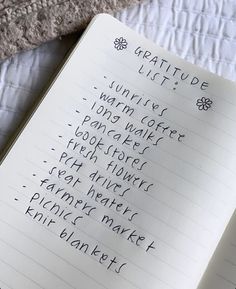 GRATITUDE
LIST:
- sunrises
- warm coffee
- long walks
- pancakes
- bookstores
- fresh flowers
- PCH drives
- seat heaters
- farmers market
- picnics
- knit blankets